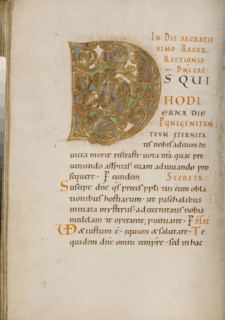 IN DIE SACRATIS
SIMO RESUR
RECTIONIS
DNICAE
DS QUI
HODI
ERNA DIE
UNIGENITUM
TUUM ETERNITA
tis nobis aditum de
uicta morte reserasti · uota nra quae pre
ueniendo aspiras · etiam adiuuando pro
sequere · P eundem
SECRETA
Suscipe dne qs preces ppli tui cum obla
tionibus hostiarum · ut paschalibus
initiata mysteriis · ad eternitatis nobis
medelam te operante, proueniant · P
UD iustum e · equum & salutare · Te
quidem dne omni tempore · sed in hac